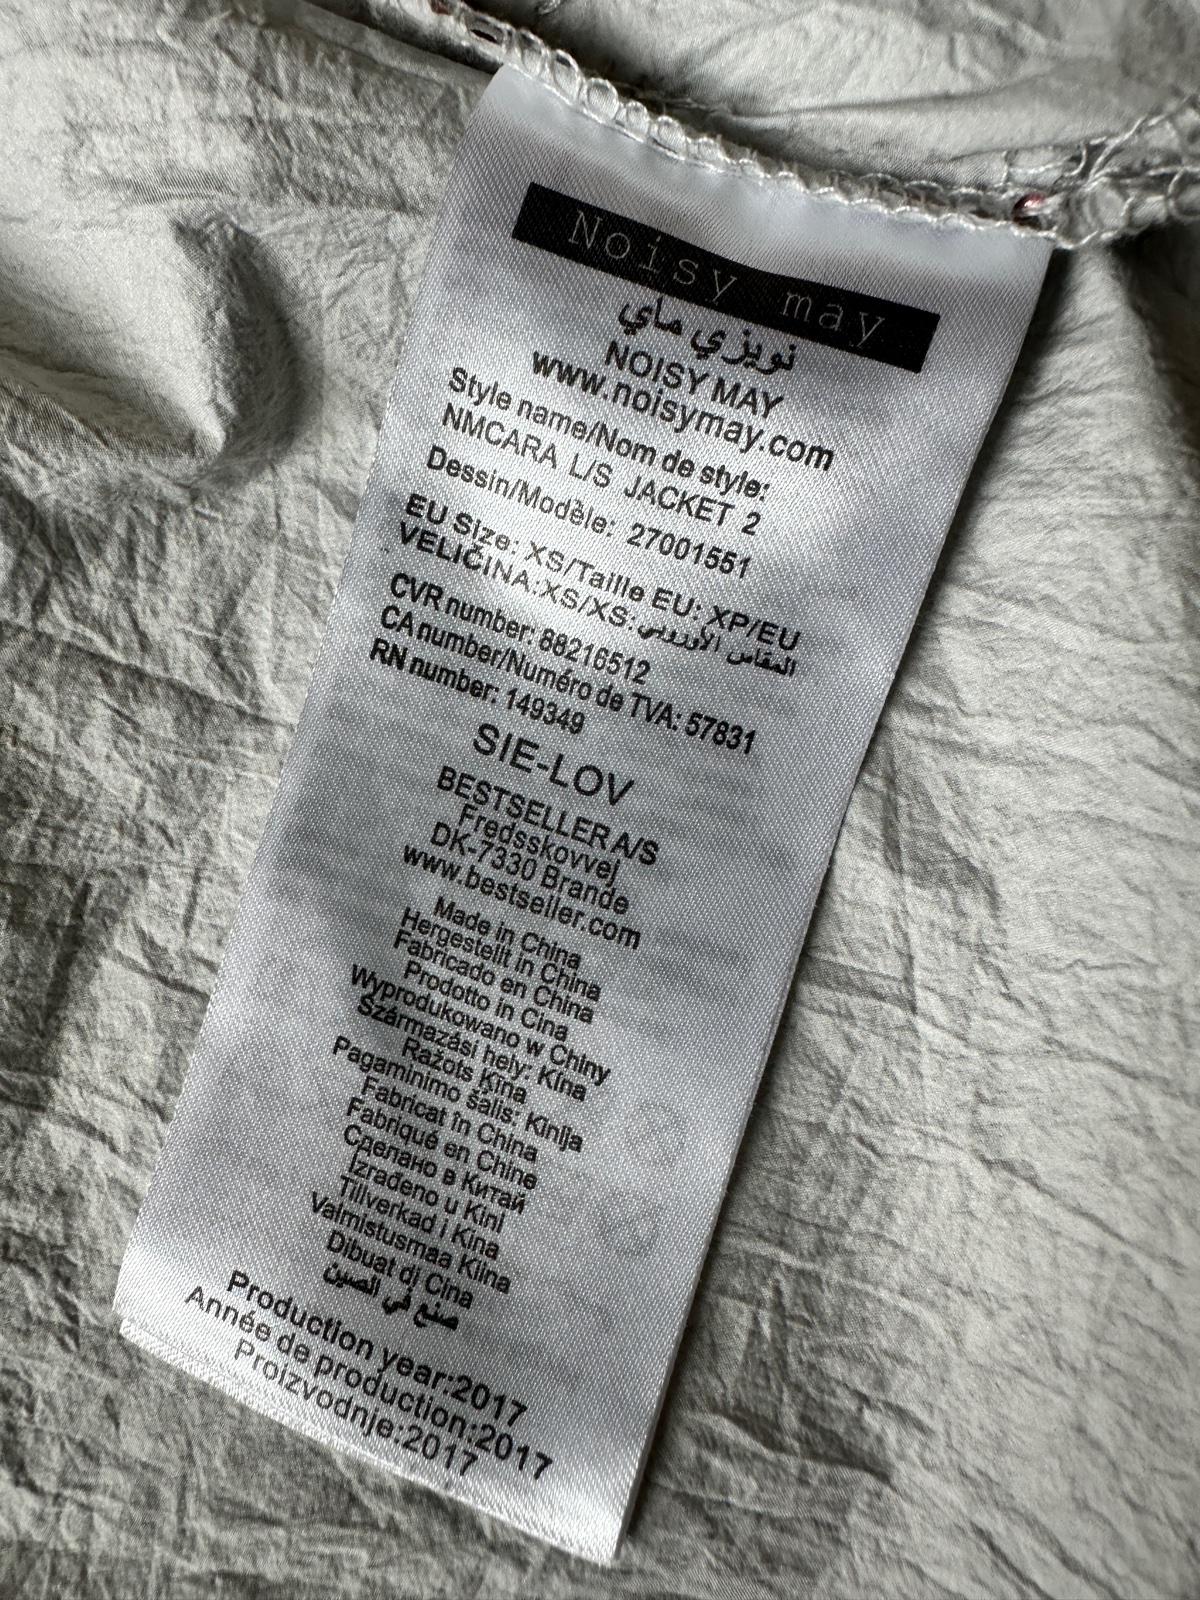 Noisy may
نويزي ماي
NOISY MAY
www.noisymay.com
Style name/Nom de style:
NMCARA L/S JACKET 2
Dessin/Modèle: 27001551
EU Size: XS/Taille EU: XP/EU
VELIČINA:XS/XS:المقاس الأوروبي
CVR number: 88216512
CA number/Numéro de TVA: 57831
RN number: 149349
SIE-LOV
BESTSELLER A/S
Fredsskovvej
DK-7330 Brande
www.bestseller.com
Made in China
Hergestellt in China
Fabricado en China
Prodotto in Cina
Wyprodukowano w Chiny
Származási hely: Kína
Ražots Ķīna
Pagaminimo šalis: Kinija
Fabricat în China
Fabriqué en Chine
Сделано в Китай
Izrađeno u Kini
Tillverkad i Kina
Valmistusmaa Kiina
Dibuat di Cina
صنع في الصين
Production year:2017
Année de production:2017
Proizvodnje:2017